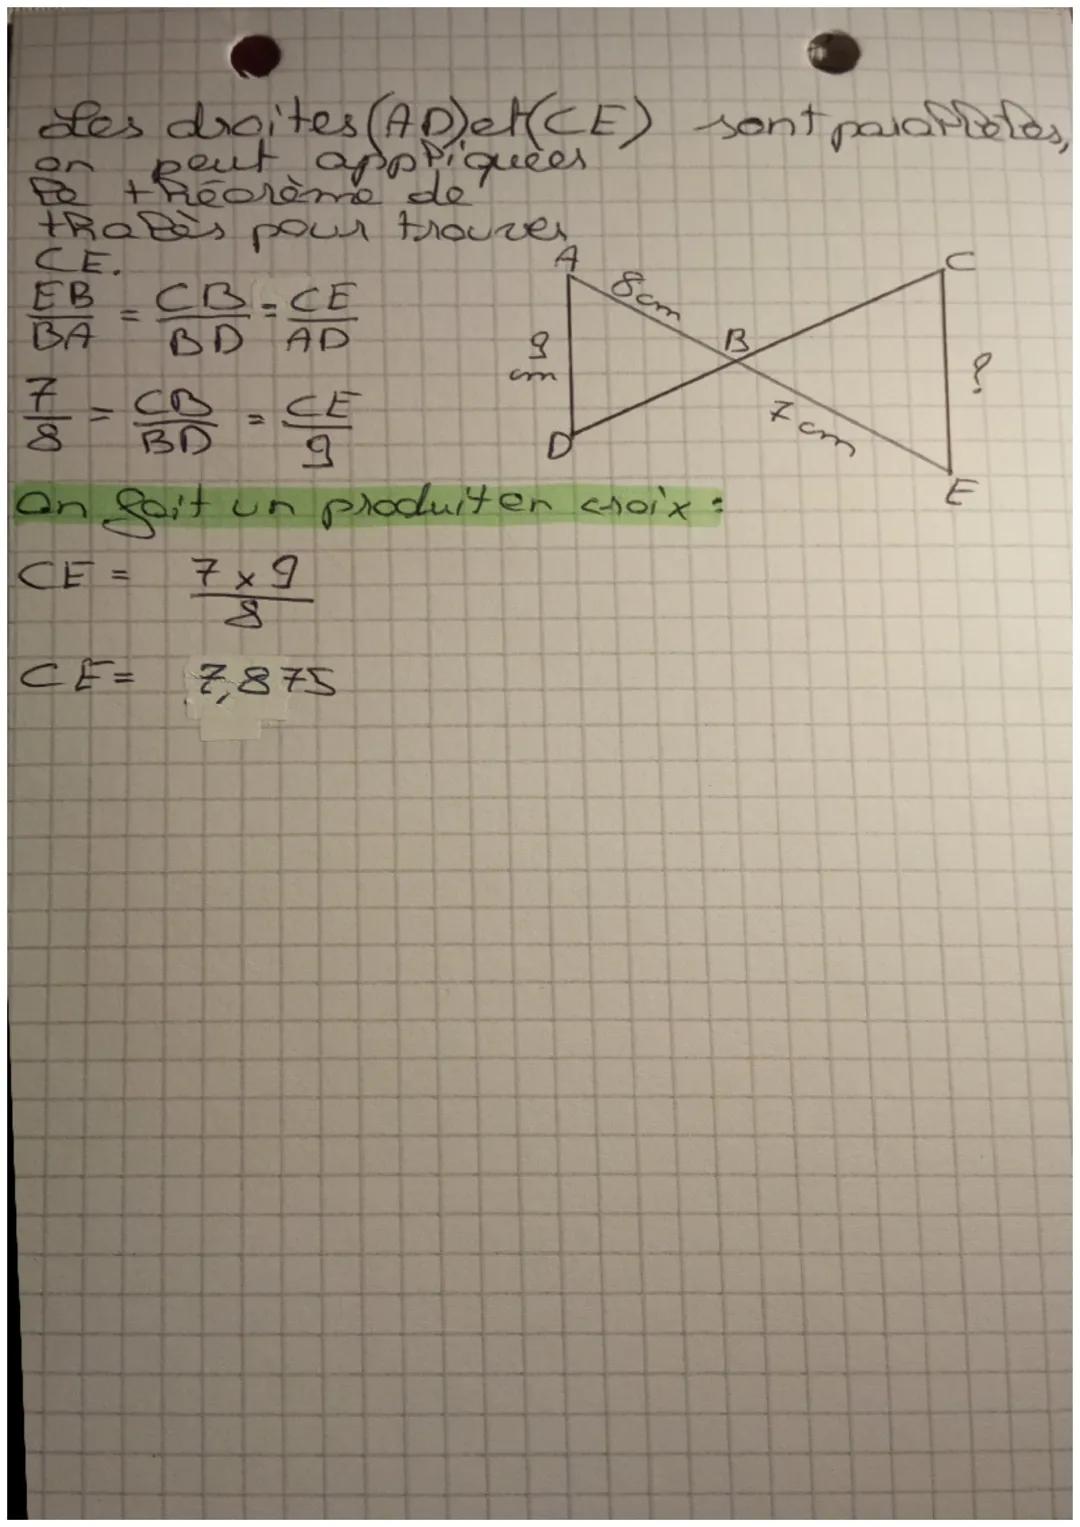 Les droites (AD) et (CE) sont parallèles,
on peut appliquées
le théorème de
thalès pour trouver
CE.
EB/BA = CB/BD = CE/AD
7/8 = CB/BD = CE/9
On fait un produit en croix :
CE = 7 x 9/8
CE = 7,875
A
8 cm
C
9 cm
B
?
7 cm
D
E